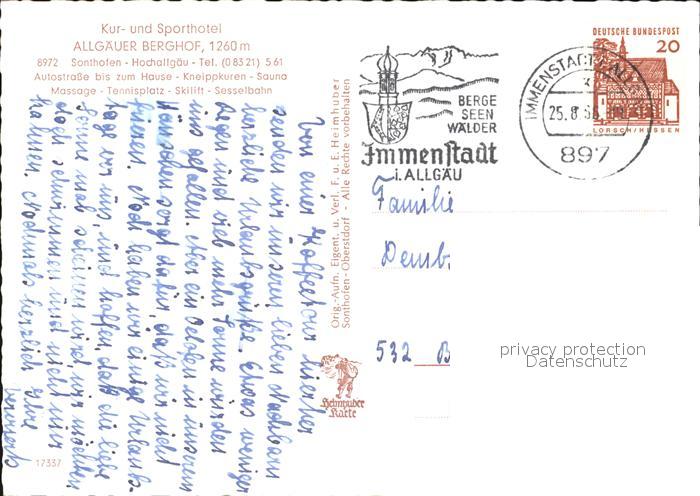 Kur- und Sporthotel
ALLGÄUER BERGHOF, 1260 m
8972 Sonthofen - Hochallgäu - Tel. (0 83 21) 5 61
Autostraße bis zum Hause - Kneippkuren - Sauna
Massage - Tennisplatz - Skilift - Sesselbahn
Von einer hierher
senden wir unseren lieben Nachbarn
herzliche Urlaubsgrüße. Etwas weniger
Regen und viel mehr Sonne würden
uns gefallen. Aber ein Ofen in unserem
sorgt dafür, daß wir nicht
frieren. Noch haben wir einige Urlaubs-
tage vor uns, und hoffen, daß die liebe
Sonne mal scheinen wird. wir möchten
doch schwimmen und nicht nur
Nochmals herzlich Ihre
Orig.-Aufn. Eigent. u. Verl. F. u. E. Heimhuber
Sonthofen-Oberstdorf - Alle Rechte vorbehalten
Heimhuber
Karte
17337
BERGE
SEEN
WÄLDER
Immenstadt
i. ALLGÄU
IMMENSTADT
25.8.
897
DEUTSCHE BUNDESPOST
20
LORSCH/HESSEN
Familie
532 B
privacy protection
Datenschutz